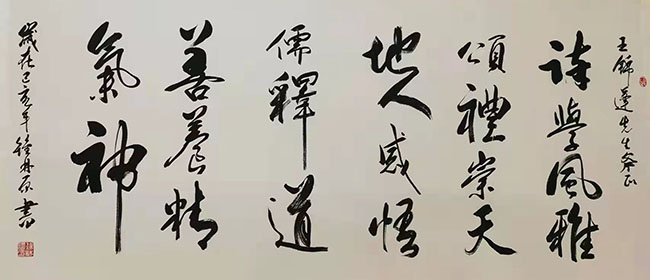 王錦達先生斧正
詩學風雅
頌禮崇天
地人感悟
儒釋道
善養精
氣神
歲在己亥年 書